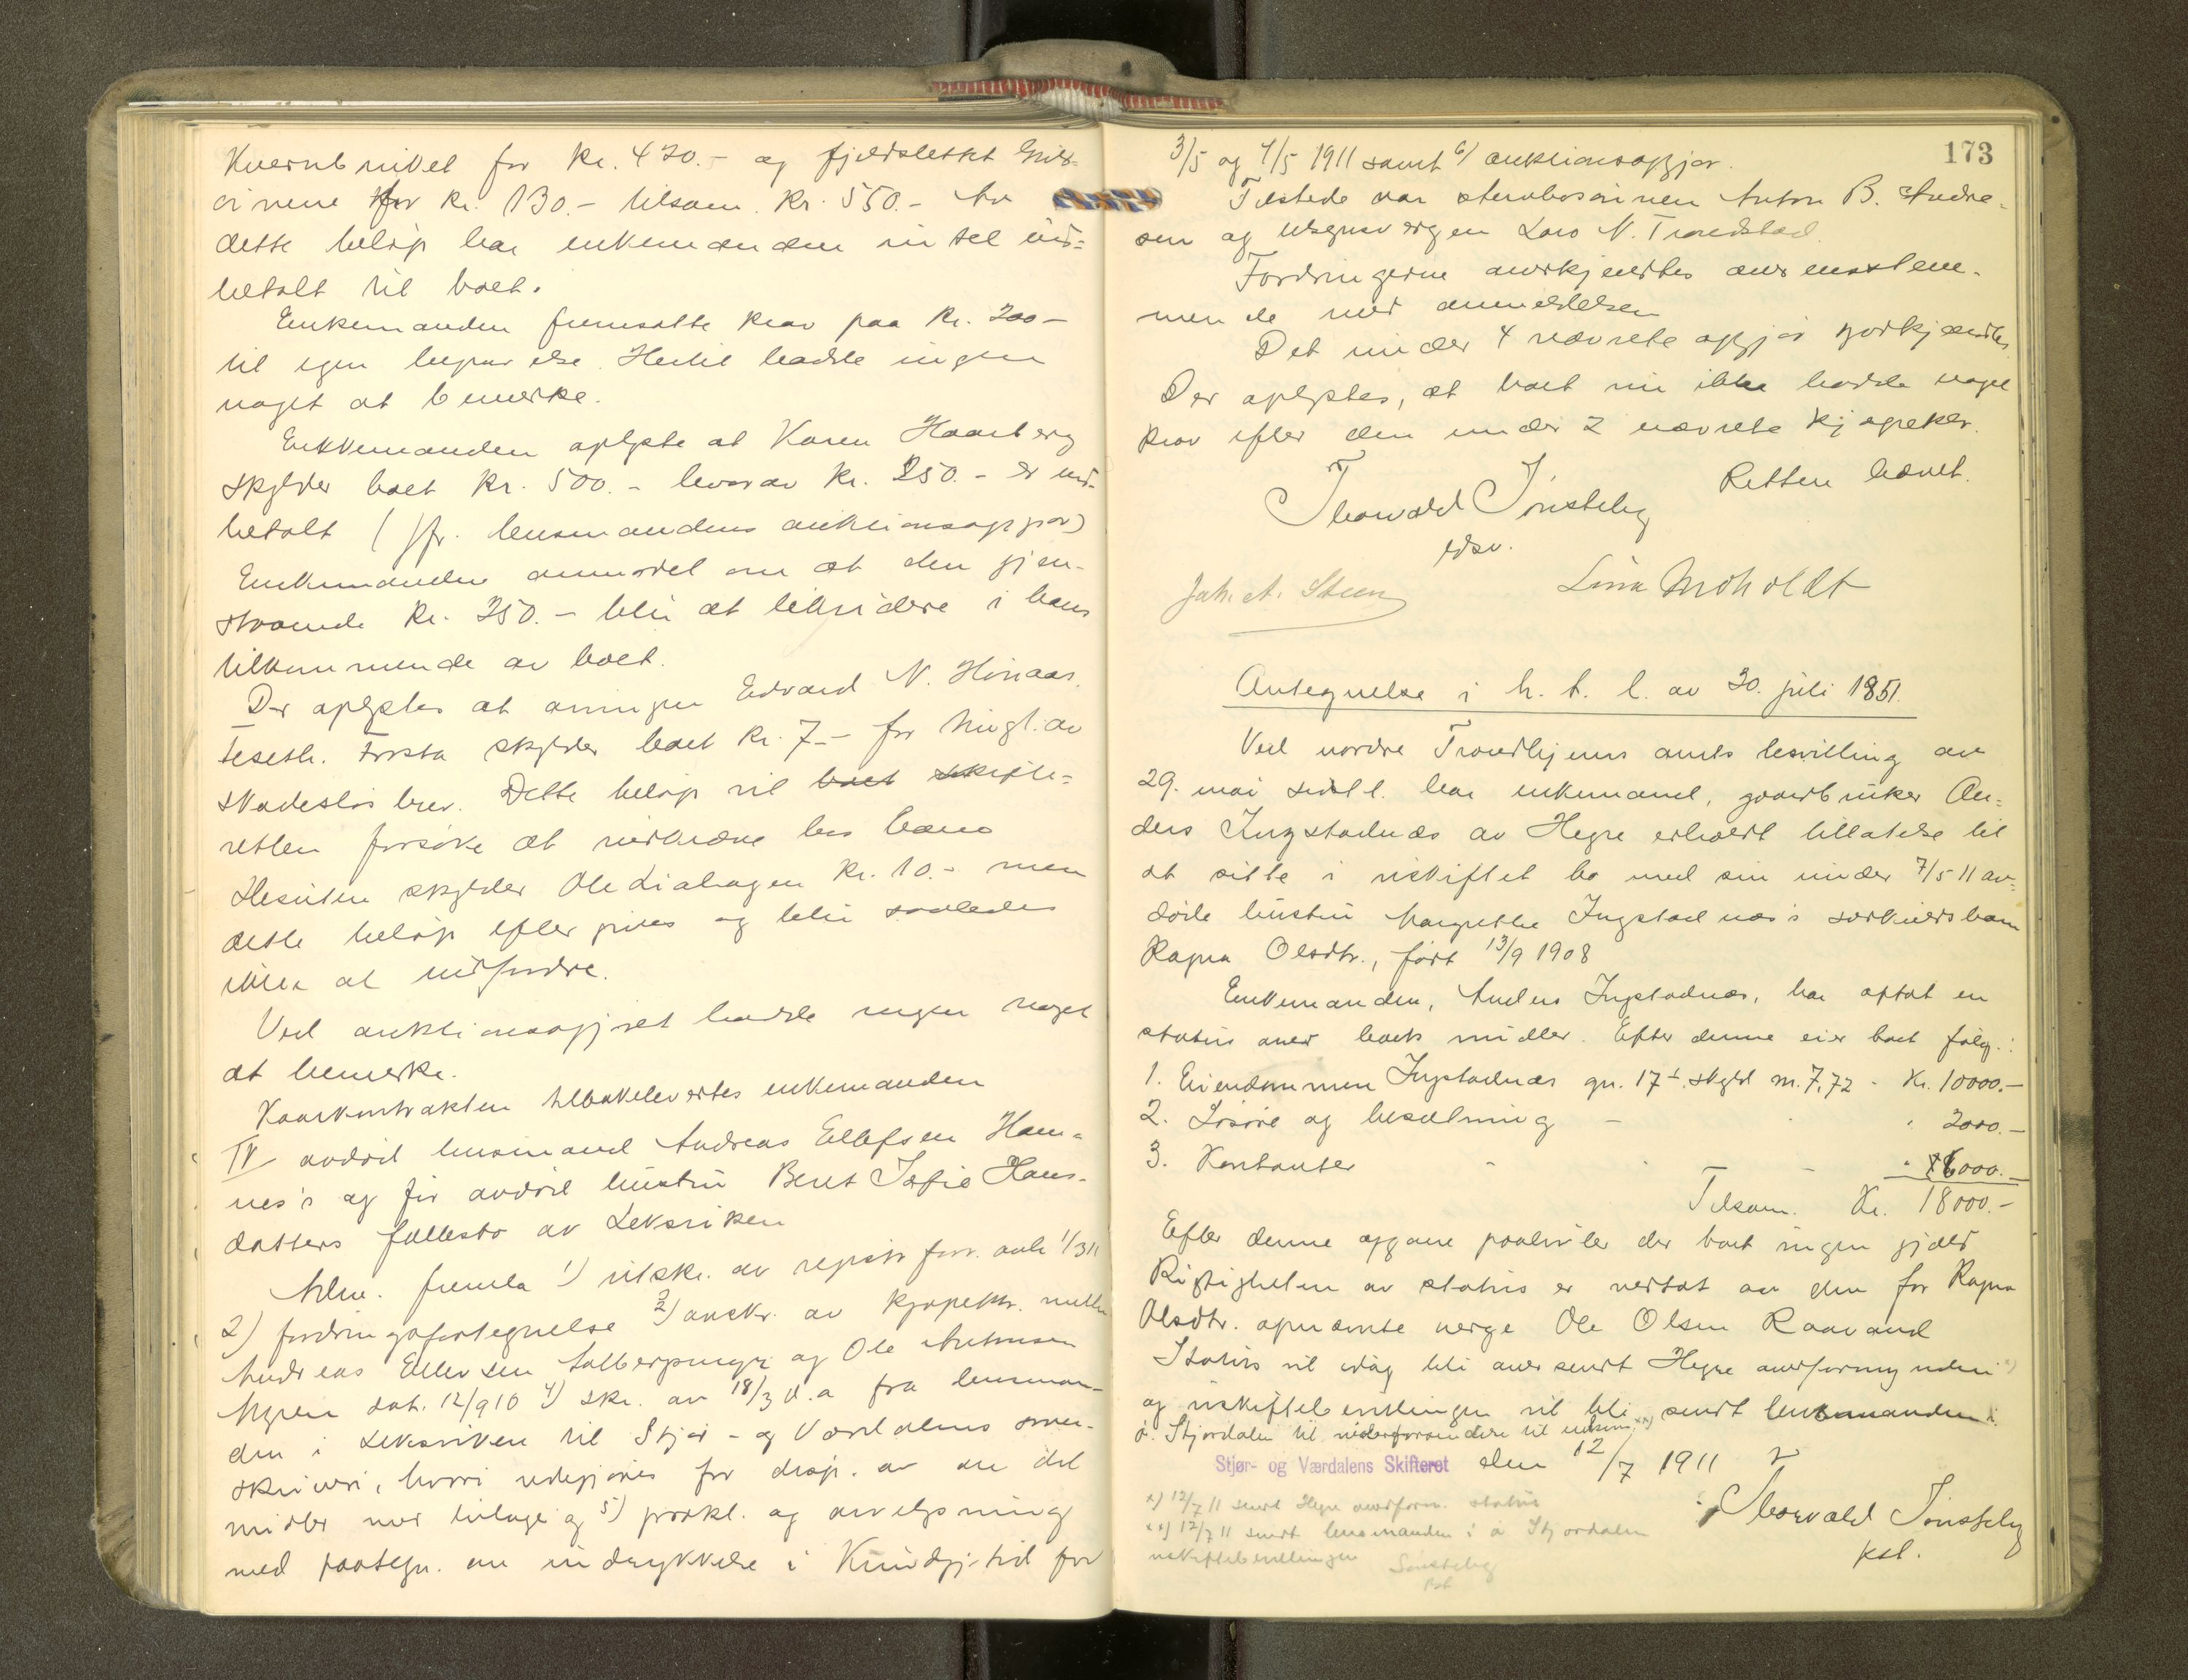 Kvernbruket for kr. 420.- og fjeldslettet
for kr. 130.- tilsam. kr. 550.- Av
dette beløp har enkemanden intet ind=
betalt til boet.
Enkemanden fremsatte krav paa kr. 200-
til egen begravelse. Hertil hadde ingen
noget at bemerke.
Enkemanden oplyste at Karen Haarberg
skylder boet kr. 500.- hvorav kr. 250.- er ind-
betalt (jfr. lensmandens auktionsopgjør)
Enkemanden anmodet om at den gjen-
staaende kr. 250.- blir at likvidere i hans
tilkommende av boet.
Der oplystes at arvingen Edvard N. Hönaas,
Frosta skylder boet kr. 7.- for tingl. av
skadesløsbrev. Dette beløp vil boet skifte=
retten forsøke at indkræve hos ham
Desuten skylder Ole Liahagen kr. 10.- men
dette beløp eftergives og blir saaledes
ikke at indfordre.
Ved auktionsopgjøret hadde ingen noget
at bemerke.
Kaarkontrakten tilbakelevertes enkemanden
IV avdød husmand Andreas Ellefsen Ham=
nes's og før avdøde hustru Berit Sofie Hans-
datters fællesbo av Leksviken
Adm. fremla 1) utskr. av registr. forr. avh. 1/3 11
2) fordringsfortegnelse 3) avskr. av kjøpektr. mellem
Andreas Ellevsen og Ole Antonsen
Myren dat. 12/9 10 4) skr. av 18/3 d.a fra lensman-
den i Leksviken til Stjør- og Værdalens soren-
skriveri, hvori redegjøres for disp. av en del
midler med bilage og 5) prokl. og avlysning
med paategn. om indrykkelse i Kundgj. tid for
173
3/5 og 4/5 1911 samt 6) auktionsopgjør.
Tilstede var stervbosarvinen Anton B. Andre-
sen og Lars N. Trondstad.
Fordringerne anerkjendtes overensstem-
mende med anmeldelsen
Det under 4 nævnte opgjør godkjendtes
Der oplystes, at boet nu ikke hadde noget
krav efter den under 2 nævnte kjøpektr.
Retten hævet.
Thorvald Tönseth
edsv.
Joh. A. Steen
Lina Moholdt
Antegnelse i h. t. l. av 30. juli 1851.
Ved nordre Trondhjems amts bevilling av
29. mai sidstl. har enkemand, gaardbruker An=
ders Ingstadnæs av Hegre erholdt tillatelse til
at sitte i uskiftet bo med sin under 7/5 11 av=
døde hustru Margrethe Ingstadnæs's særkuldsbarn
Ragna Olsdtr., født 13/9 1908
Enkemanden, Anders Ingstadnæs, har optat en
status over boets midler. Efter denne eier boet følg.:
1. Eiendommen Ingstadnæs gn. 17 skyld m. 7,72 - Kr. 10000.-
2. Løsøre og besætning - " 2000.-
3. Kontanter - - " 6000.-
Tilsam. Kr. 18000.-
Efter denne opgave paahviler der boet ingen gjæld
Rigtigheten av status er vedtat av den for Ragna
Olsdtr. opnævnte verge Ole Olsen Raavand
Status vil idag bli oversendt Hegre overformynderi x)
og uskiftebevillingen vil bli sendt lensmanden i
ö. Stjørdalen til videreforsendelse til enkem. xx)
Stjør- og Værdalens Skifteret den 12/7 1911
Thorvald Tönseth
kst.
x) 12/7 11 sendt Hegre overform. status
xx) 12/7 11 sendt lensmanden i ö Stjørdalen
uskiftebevillingen